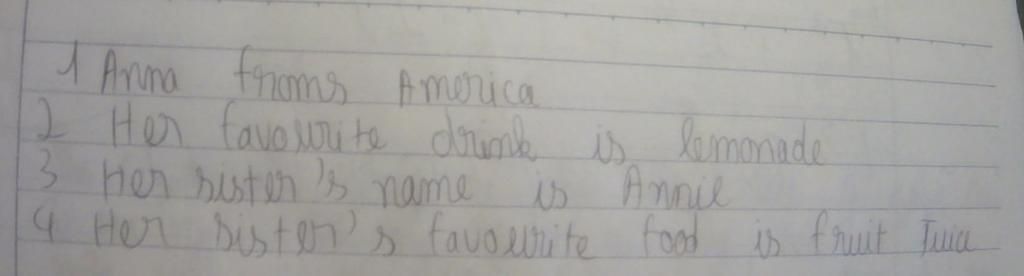 1 Anna froms America
2 Her favourite drink is lemonade
3 Her sister's name is Annie
4 Her sister's favourite food is fruit Juice